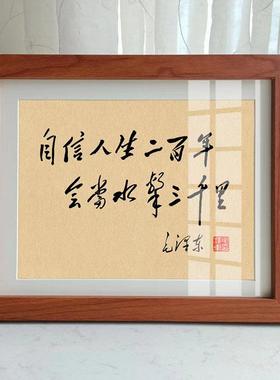 自信人生二百年
会当水擊三千里
毛泽东